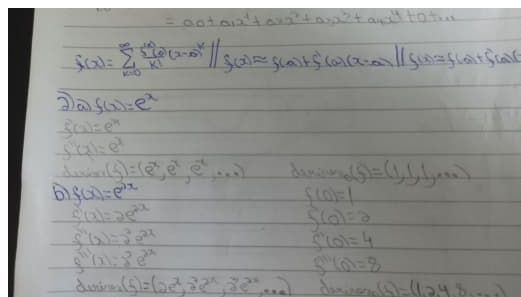 = a0+a1x¹+a2x²+a3x³+a4x⁴+0+...
f(x)=∑_{k=0}^{∞} f^(k)(a)/k! (x-a)^k || f(x)≈f(a)+f'(a)(x-a) || f(x)≈f(a)+f'(a)(
2) a) f(x)=e^x
f'(x)=e^x
f''(x)=e^x
(f)=(e^x, e^x, e^x, ...) (f)=(1,1,1,...)
b) f(x)=e^2x f(0)=1
f'(x)=2e^2x f'(0)=2
f''(x)=2²e^2x f''(0)=4
f'''(x)=2³e^2x f'''(0)=8
(f)=(2e^2x, 2²e^2x, 2³e^2x, ...) (f)=(1,2,4,8,...)